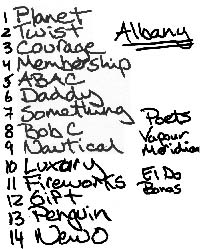 1 Planet
2 Twist
3 Courage
4 Membership
5 ABAC
6 Daddy
7 Something
8 Bob C
9 Nautical
10 Luxury
11 Fireworks
12 Gift
13 Penguin
14 New O
Albany
Poets
Vapour
Meridian
El Do
Bonas